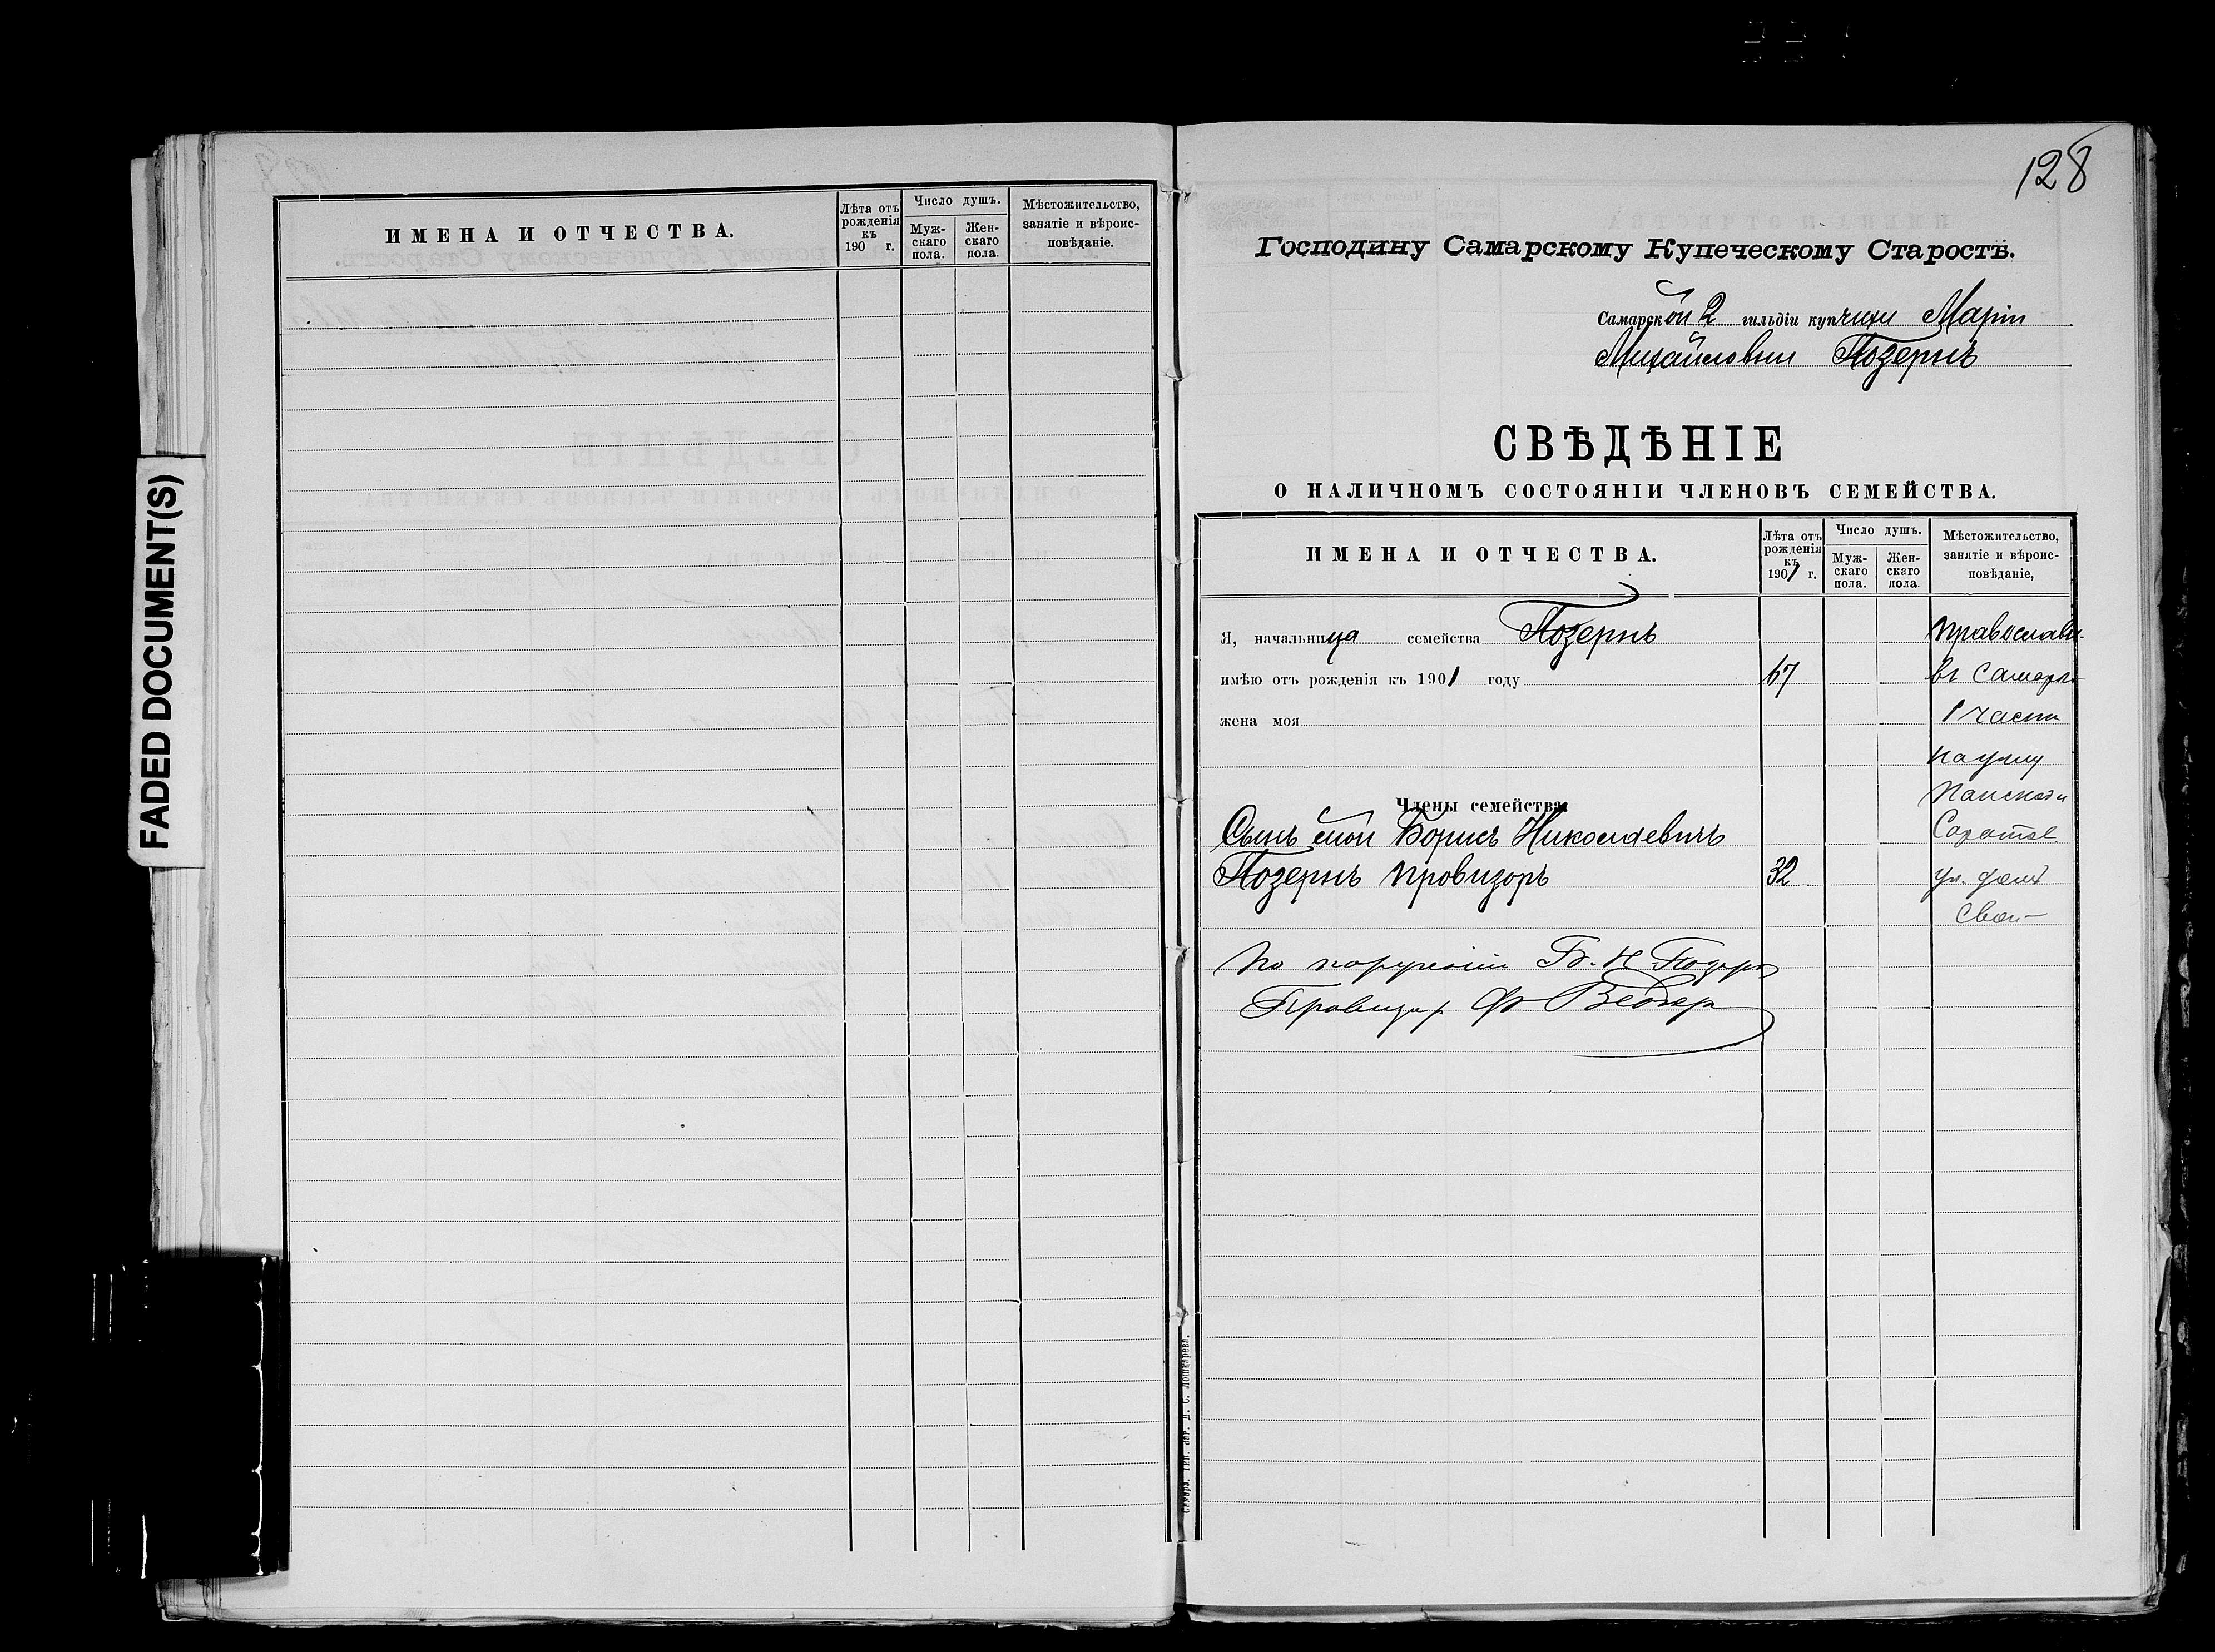 FADED DOCUMENT(S)
ИМЕНА И ОТЧЕСТВА.
Лѣта отъ рожденія къ 190 г.
Число душъ.
Мужскаго пола.
Женскаго пола.
Мѣстожительство, занятіе и вѣроисповѣданіе.
128
Господину Самарскому Купеческому Старостѣ.
Самарской 2 гильдіи купчихи Маріи
Михайловны Позернъ
СВѢДѢНІЕ
О НАЛИЧНОМЪ СОСТОЯНІИ ЧЛЕНОВЪ СЕМЕЙСТВА.
ИМЕНА И ОТЧЕСТВА.
Лѣта отъ рожденія къ 1901 г.
Число душъ.
Мужскаго пола.
Женскаго пола.
Мѣстожительство, занятіе и вѣроисповѣданіе,
Я, начальница семейства Позернъ православн.
имѣю отъ рожденія къ 1901 году 67 въ Самарѣ
жена моя 1 части
на углу
Члены семейства: Панской и
Сынъ мой Борисъ Николаевичъ Саратов.
Позернъ провизоръ 32 ул. домъ
свой
По порученію Б. Н. Позернъ
Провизор Ф
Самара. Тип. Зар. Д. С. Лошкарева.